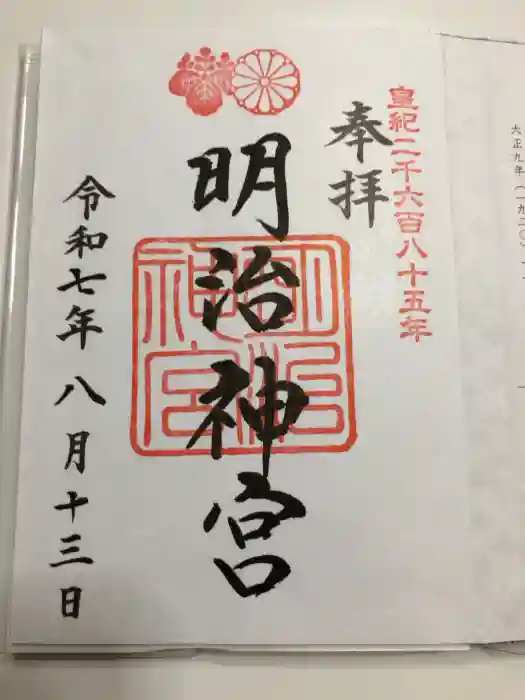 大正九年(一九二〇
皇紀二千六百八十五年
奉拝
明治神宮
明治神宮
令和七年八月十三日